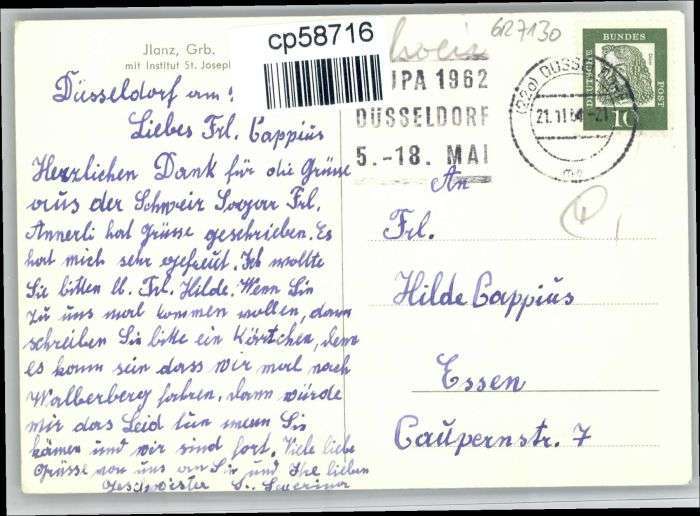 Jlanz, Grb.
mit Institut St. Josepl
cp58716
6R7130
Schweiz
UPA 1962
DÜSSELDORF
5.-18. MAI
(22a) DÜSSELDORF
21.11.61-21
DEUTSCHE
BUNDES
POST
10
Düsseldorf am!
Liebes Frl. Cappius
Herzlichen Dank für die Grüsse
aus der Schweiz Sogar Frl.
Annerli hat Grüsse geschrieben. Es
hat mich sehr gefreut. Ich wollte
Sie bitten lb. Frl. Hilde. Wenn Sie
zu uns mal kommen wollen, dann
schreiben Sie bitte ein Kärtchen, denn
es kann sein dass wir mal nach
Walberberg fahren, dann würde
mir das Leid tün wenn Sie
kämen und wir sind fort. Viele liebe
Grüsse von uns an Sie und Ihre lieben
Geschwister Severina
An
Frl.
Hilde Cappius
Essen
Caupernstr. 7